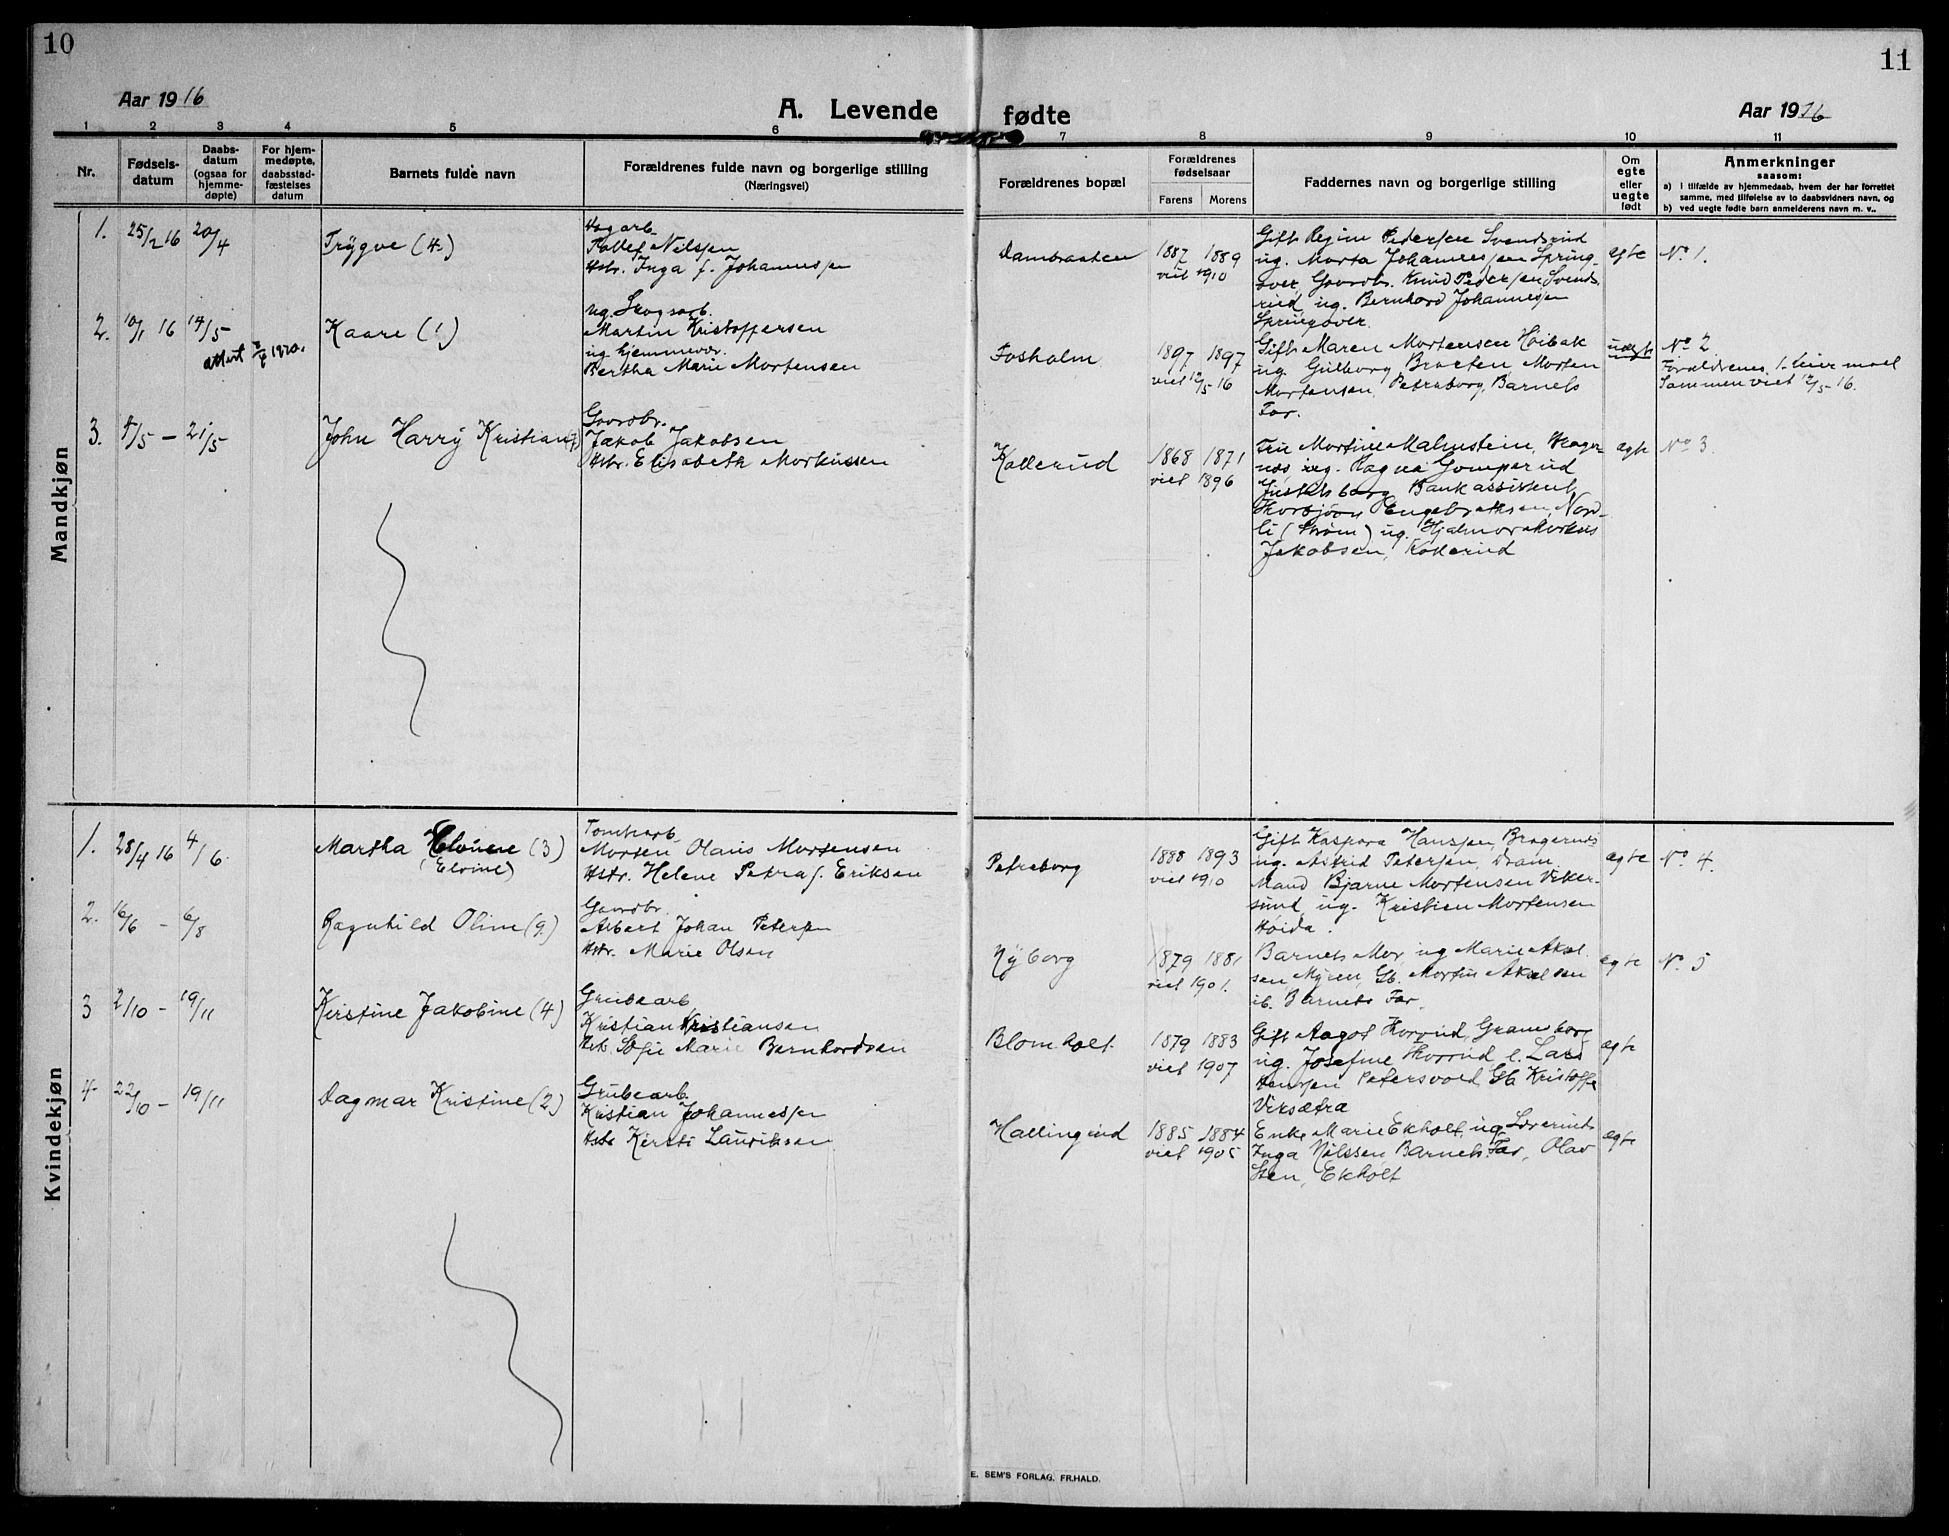 10
Aar 1916
A. Levende
1 2 3 4 5 6
Nr.
Fødsels-
datum
Daabs-
datum
(ogsaa for
hjemme-
døpte)
For hjem-
medøpte,
daabsstad-
fæstelses
datum
Barnets fulde navn
Forældrenes fulde navn og borgerlige stilling
(Næringsvei)
Mandkjøn
1. 25/2 16 20/4 Trygve (4.)
Nilssen
Hstr. Inga f. Johannessen
2. 10/1 16 14/5 Kaare (1.)
attest 1920.
ug. Skogsarb.
Martin Kristoffersen
ug. hjemmevær.
Bertha Marie Mortensen
3. 5/5 — 21/5 John Harry Kristian
Gaardbr.
Jakob Jakobsen
Hstr. Elisabeth Markussen
Kvindekjøn
1. 28/4 16 4/6. Martha Elvine (3)
(Elvine)
Tomtearb
Morten Olaus Mortensen
Hstr. Helene Petra f. Eriksen
2. 16/6 — 6/8 Ragnhild Oline (9.)
Gaardbr.
Albert Johan Petersen
Hstr. Marie Olsen
3 2/10 — 19/11 Kirstine Jakobine (4)
Grubearb
Kristian Kristiansen
Hstr. Sofie Marie Bernhardsen
4 22/10 — 19/11 Dagmar Kristine (2)
Grubearb.
Kristian Johannessen
Hstr Kirsti Lauriksen
11
fødte
Aar 1916
7 8 9 10 11
Forældrenes bopæl
Forældrenes
fødselsaar
Farens Morens
Faddernes navn og borgerlige stilling
Om
egte
eller
uegte
født
Anmerkninger
saasom:
a) i tilfælde av hjemmedaab, hvem der har forrettet
samme, med tilføielse av to daabsvidners navn, og
b) ved uegte fødte barn anmelderens navn m. v..
Dambraaten 1887 1889
viet 1910
Gift Regine Pedersen Svendsrud
ug. Marta Johannessen Spring-
over, Gaardbr. Knud Pedersen Svends-
rud, ug. Bernhard Johannessen
Springover.
egte No 1.
Fosholm 1897 1897
viet 12/5 16
Gift Maren Mortensen Høibak
ug. Gulborg Braaten Morten
Mortensen, Petraborg, Barnets
Far.
uegte No 2
Forældrenes 1. leiermaal
Sammenviet 12/5-16.
Kollerud 1868 1871
viet 1896
Fru Martine Malmstein, Brager-
nes ug. Ragna Gomperud
Bankassistent
Engebrethsen, Nord-
li (Strøm) ug. Hjalmar Markus
Jakobsen, Kollerud
egte No 3
Petraborg 1888 1893
viet 1910
Gift Kaspara Hanssen, Bragernes
ug. Astrid Petersen, Dram.
Mand Bjarne Mortensen Viker-
sund, ug. Kristian Mortensen
Høida.
egte No 4.
Nyborg 1879 1881
viet 1901.
Barnets Mor, ug Marie Aksel-
sen, Myren, Gb. Martin Akselsen
ib. Barnets Far.
egte No 5
Blomholt. 1879 1883
viet 1907
Gift Aagot Horrud, Gramsborg
ug. Josefine Horrud e. Lars
Hanssen Petersvold, Gb Kristoffer
Viksætra
egte
Hallingrud 1885 1884
viet 1905
Enke Marie Ekholt, ug
Inga Nilssen, Barnets Far, Olav
Sten, Ekholt
egte
E. SEM'S FORLAG. FR.HALD.